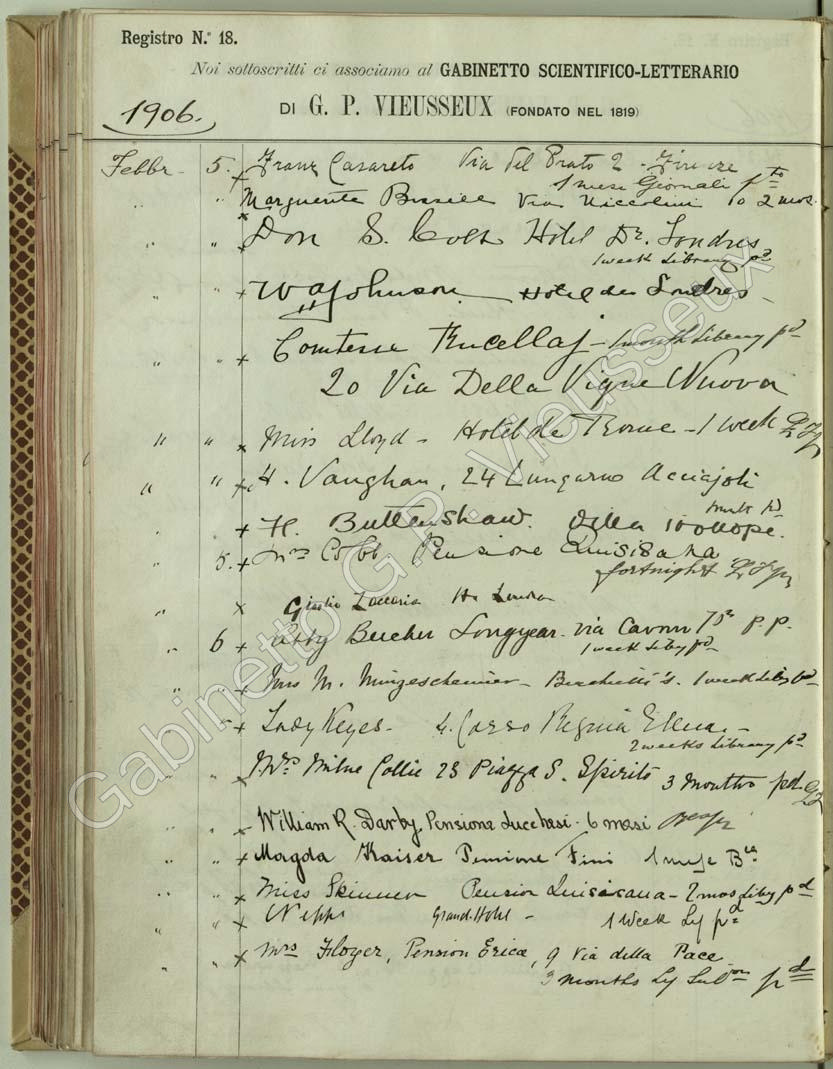 Registro N.º 18.
Noi sottoscritti ci associamo al GABINETTO SCIENTIFICO-LETTERARIO
1906.
DI G. P. VIEUSSEUX (FONDATO NEL 1819)
Febbr. 5. Franz Casareto Via del Prato 2 - Firenze
1 mese Giornali
" " Marguerite Via Niccolini 10 2 mos.
" " Don S. Hotel De Londres
1 week Library pd
" " W A Johnson Hotel des Londres
Comtesse Rucellaj - 1 month Library pd
" " 20 Via Della Vigna Nuova
" " Miss Lloyd - Hotel de Rome - 1 week
" " H. Vaughan, 24 Lungarno Acciajoli
" H. Buttenshaw. Villa
" 5. Mrs Cobb. Pensione Quisisana
fortnight
Giulio Zaccaria Ho Londra
" 6 Abby Beecher Longyear - via Cavour p. p.
1 week Liby pd
" " Mrs M. - Benchetti's. 1 week Liby pd
Lady Keyes - 4. Corso Regina Elena -
2 weeks Library pd
" " Mrs Milne Collie 23 Piazza S. Spirito 3 months pd.
" " William R. Darby, Pensione Lucchesi - 6 mesi
" " Magda Kaiser Pensione Fini 1 mese
" " Miss Skinner Pension Quisisana - 2 mos Liby pd
" " Grand Hotel - 1 Week Ly pd
" " Mrs Floyer, Pension Erica, 9 Via della Pace
3 months Ly pd
Gabinetto G.P. Vieusseux